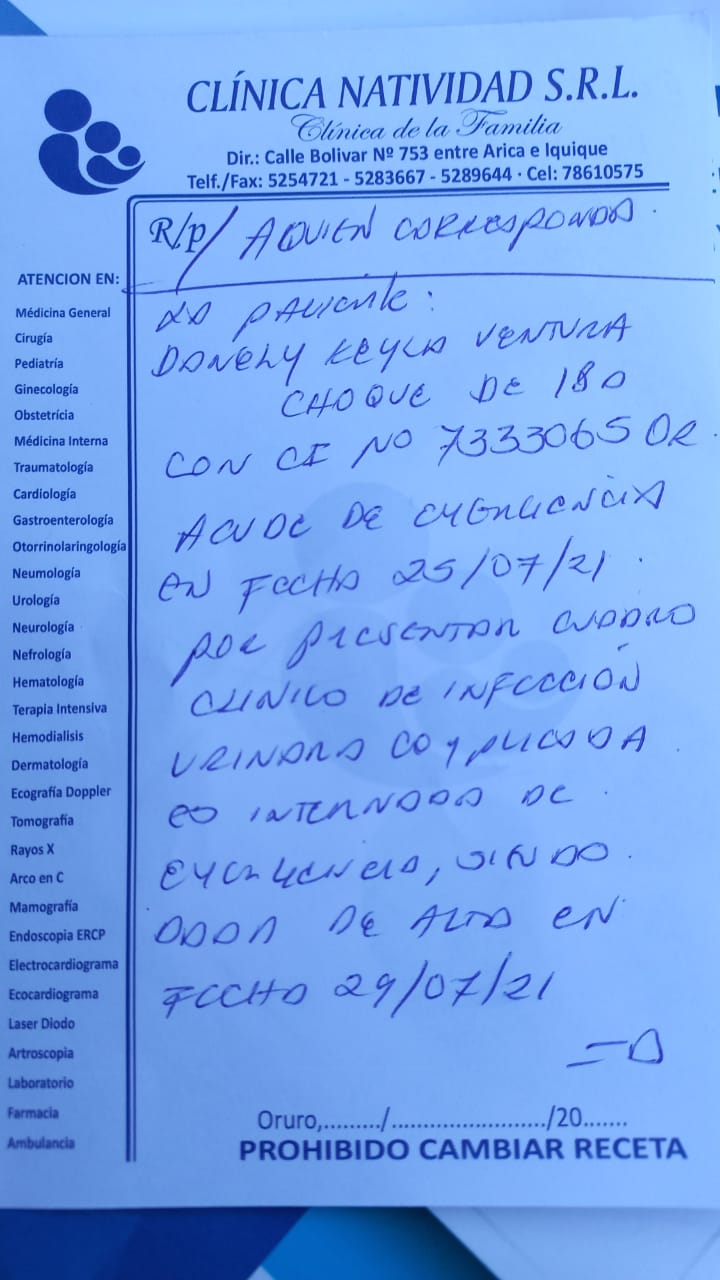 CLÍNICA NATIVIDAD S.R.L.
Clínica de la Familia
Dir.: Calle Bolivar Nº 753 entre Arica e Iquique
Telf./Fax: 5254721 - 5283667 - 5289644 · Cel: 78610575
R/p/ A QUIEN CORRESPONDA.
ATENCION EN:
Médicina General
Cirugía
Pediatría
Ginecología
Obstetrícia
Médicina Interna
Traumatología
Cardiología
Gastroenterología
Otorrinolaringología
Neumología
Urología
Neurología
Nefrología
Hematología
Terapia Intensiva
Hemodialisis
Dermatología
Ecografía Doppler
Tomografía
Rayos X
Arco en C
Mamografía
Endoscopia ERCP
Electrocardiograma
Ecocardiograma
Laser Diodo
Artroscopia
Laboratorio
Farmacia
Ambulancia
LA PACIENTE:
DANELY KEYLA VENTURA
CHOQUE DE 18 A
CON CI NO 7333065 OR.
ACUDE DE EMERGENCIA
EN FECHA 25/07/21.
POR PRESENTAR CUADRO
CLINICO DE INFECCIÓN
URINARA COMPLICADA.
ES INTERNADA DE
EMERGENCIA, SIENDO
DADA DE ALTA EN
FECHA 29/07/21
Oruro,......../......................./20.......
PROHIBIDO CAMBIAR RECETA